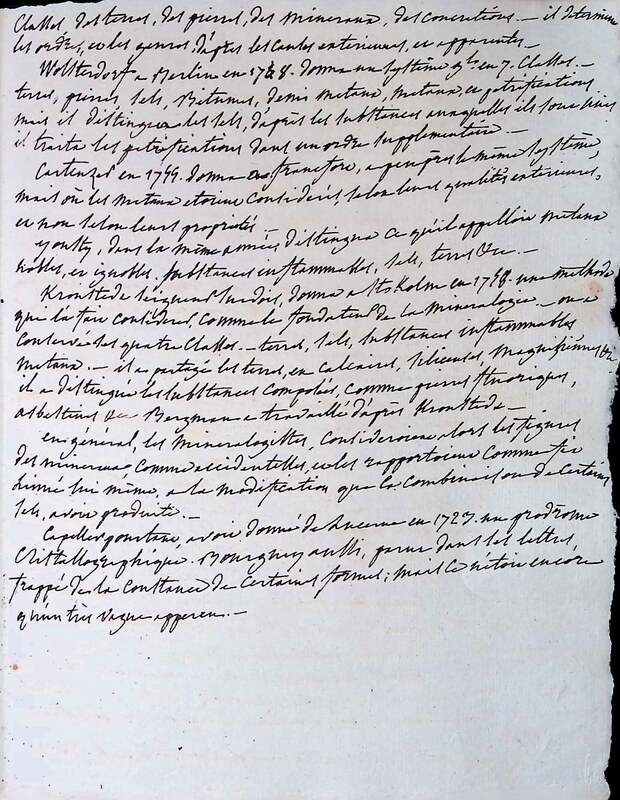 Classes des terres, des pierres, des mineraux, des concretions. — il determine
les ordres, et les genres, d'après les caules exterieures, et apparentes. —
Wolsterdorf a Berlin en 1748. donna un systême gl. en 7. Classes. —
terres, pierres, sels, Bitumes, demis metaux, metaux, et petrifications.
mais il distingua les sels, d'après les substances auxquelles ils sont unis
il traita les petrifications dans un ordre supplementaire. —
Cartenzel en 1749. donna a francfort, a peu près le même systême,
mais où les metaux etoient considerés, selon leurs qualités exterieures,
et non selon leurs proprietés. —
dans la même année, distingua ce qu'il appelloit metaux
nobles, et ignobles, substances inflammables, sels, terres &c. —
Kronstedt Seigneur suedois, donna a Stokolm en 1758. une methode
qui l'a fait considerer, comme le fondateur de la Mineralogie. on a
conservé ses quatre Classes. — terres, sels, substances inflammables
metaux. — il a partagé les terres, en Calcaires, siliceuses, Magnesiennes &c
il a distingué les substances composées, comme pierres fluoriques,
asbestines &c. Bergman a travaillé d'après Kronstedt. —
en général, les mineralogistes, consideroient alors les figures
des mineraux, comme accidentelles, et les rapportoient comme fit
Linné lui même, a la modification que la combinaison de certains
sels, avoit produite. —
Capeller pourtant, avoit donné de Lucerne en 1723. un prodrome
Cristallographique. Bourguet aussi, parut dans ses lettres,
frappé de la constance de certaines formes; mais ce n'étoit encore
qu'un très vague apperçu. —